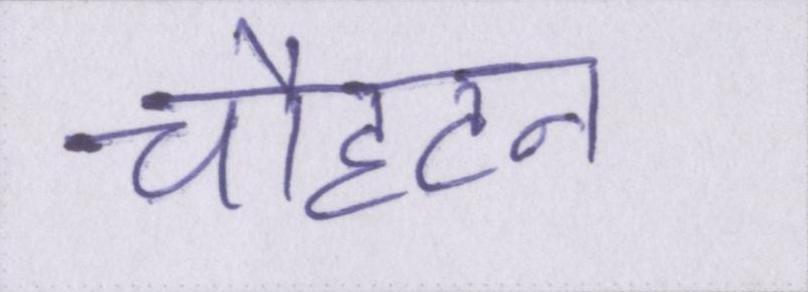 चौहटन